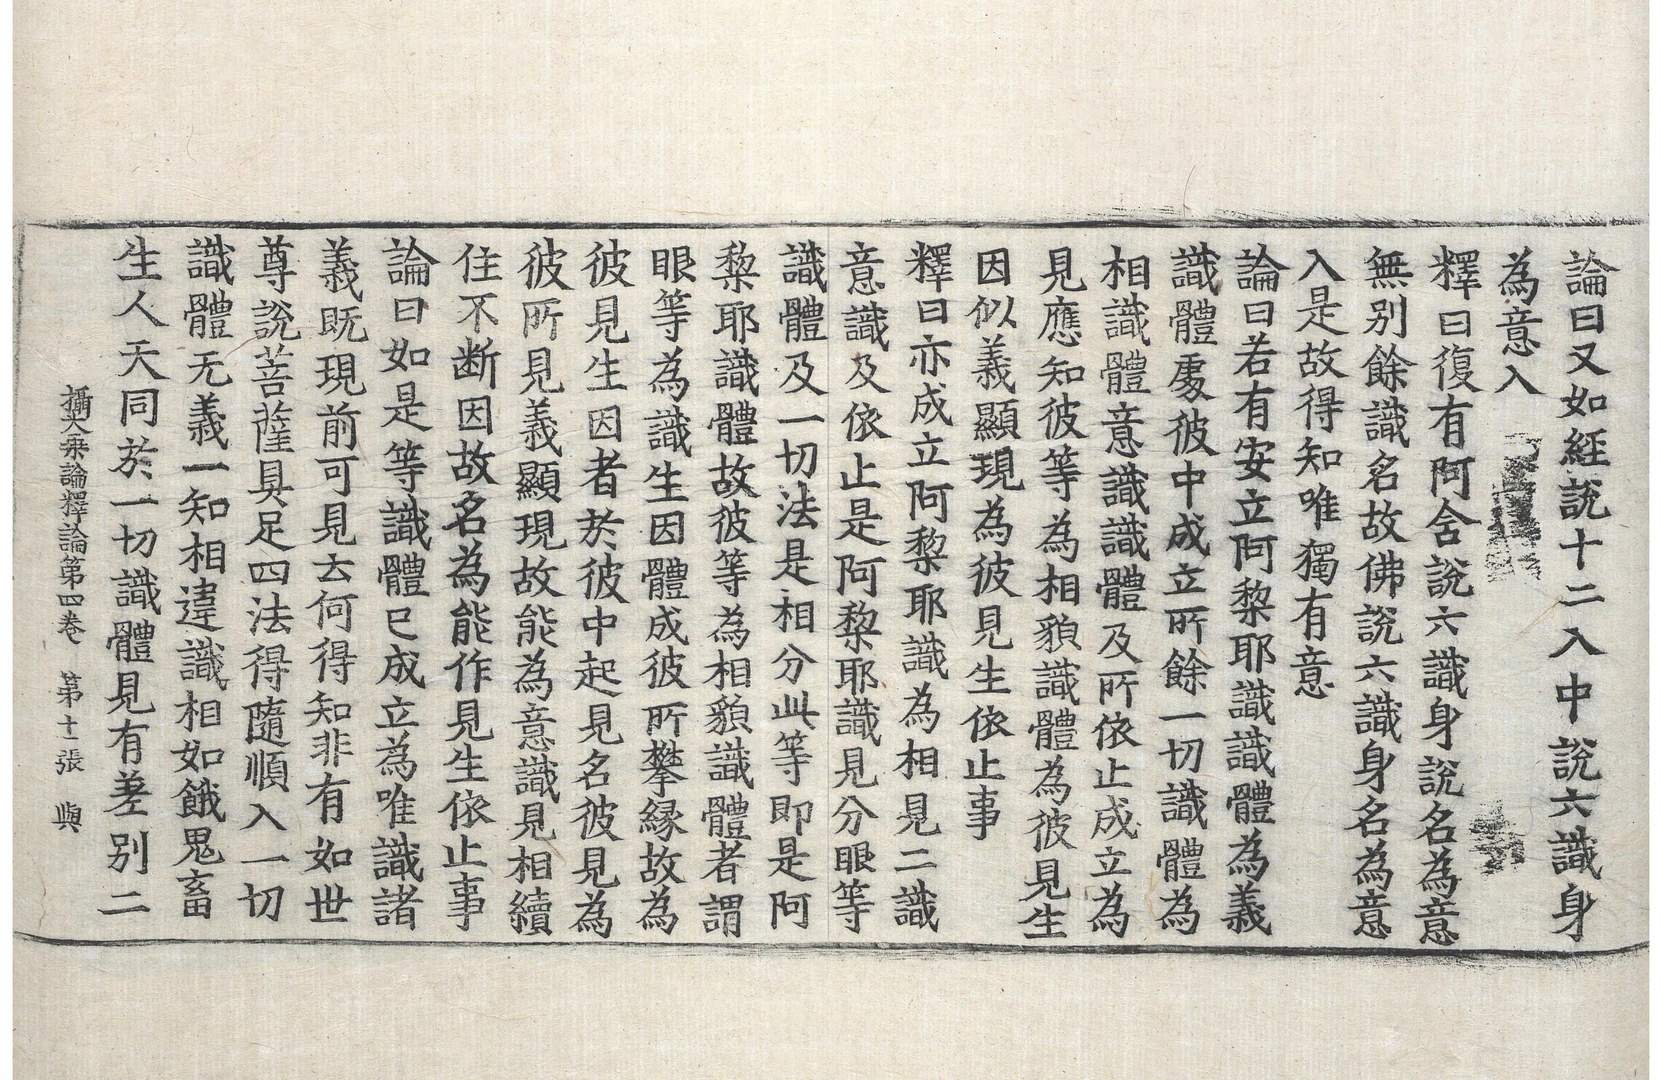 論曰又如經說十二入中說六識身
為意入
釋曰復有阿含說六識身說名為意
無別餘識名故佛說六識身名為意
入是故得知唯獨有意
論曰若有安立阿黎耶識識體為義
識體處彼中成立所餘一切識體為
相識體意識識體及所依止成立為
見應知彼等為相貌識體為彼見生
因似義顯現為彼見生依止事
釋曰亦成立阿黎耶識為相見二識
意識及依止是阿黎耶識見分眼等
識體及一切法是相分此等即是阿
黎耶識體故彼等為相貌識體者謂
眼等為識生因體成彼所攀緣故為
彼見生因者於彼中起見名彼見為
彼所見義顯現故能為意識見相續
住不断因故名為能作見生依止事
論曰如是等識體已成立為唯識諸
義既現前可見云何得知非有如世
尊說菩薩具足四法得隨順入一切
識體无義一知相違識相如餓鬼畜
生人天同於一切識體見有差別二
攝大乘論釋論第四卷　第十一張　與